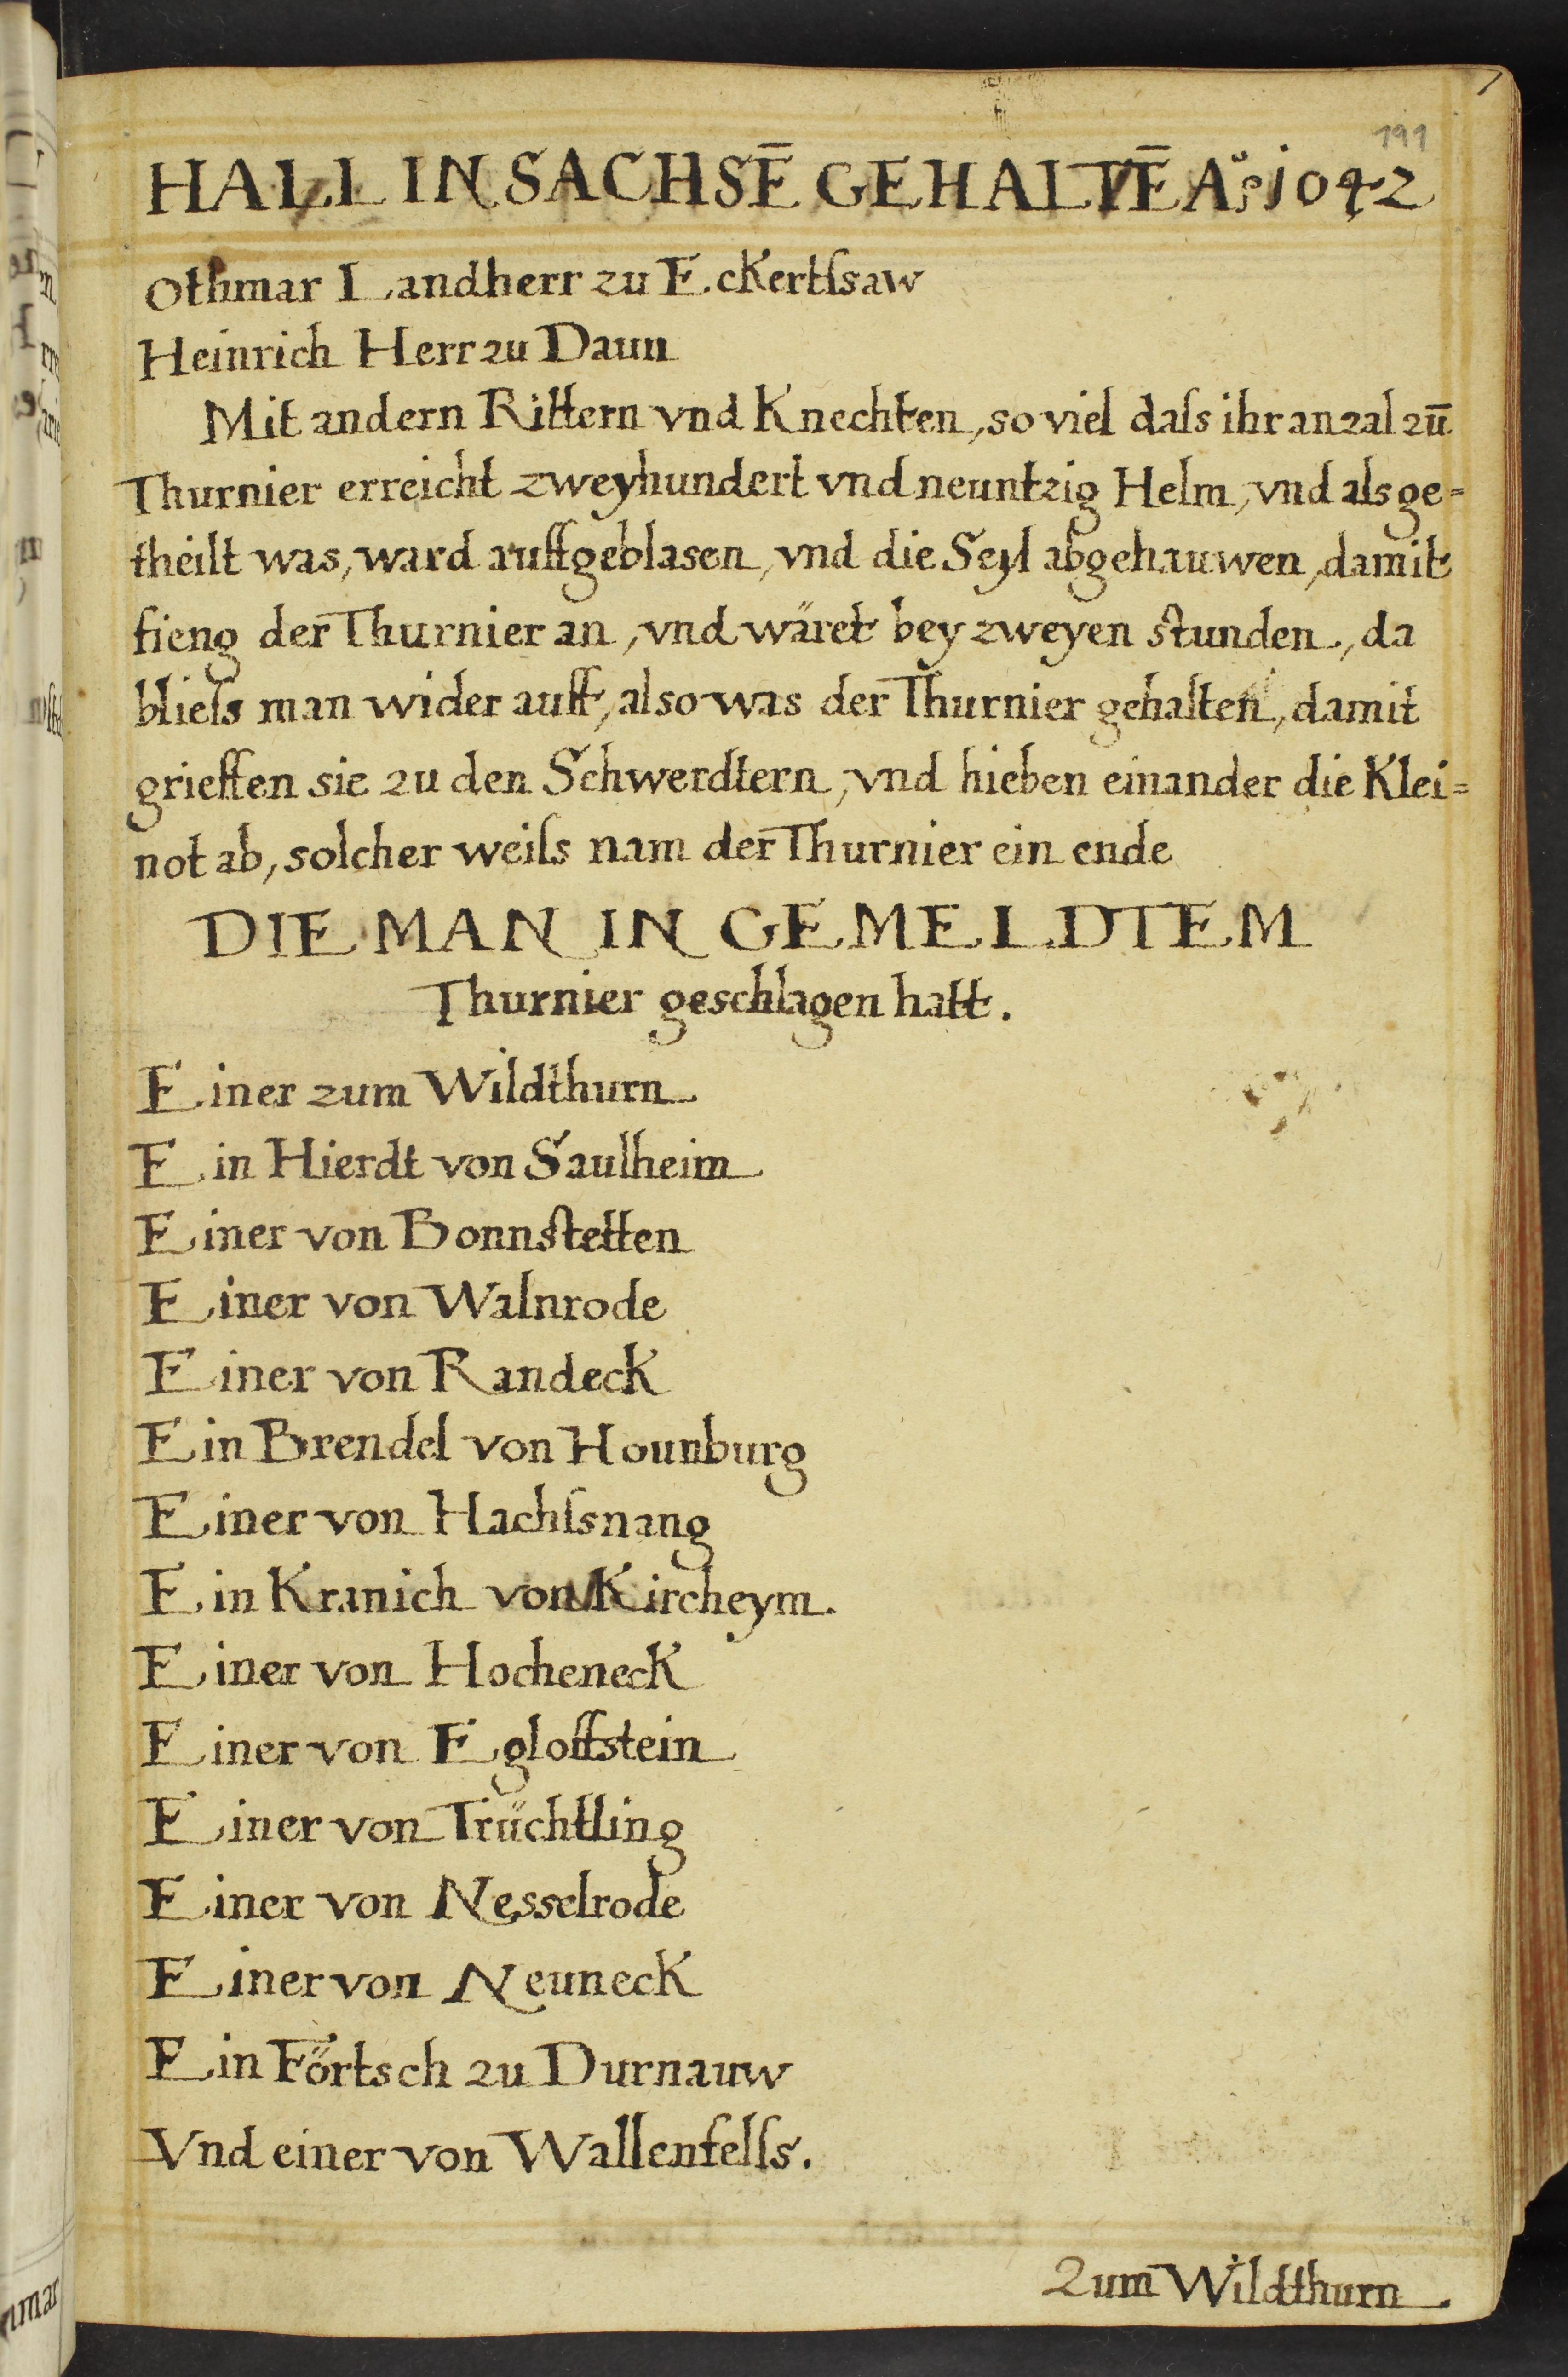 191
HALL IN SACHSĒ GEHALTĒ Aº 1042
Othmar Landherr zu Eckertſsaw
Heinrich Herr zu Daun
Mit andern Rittern vnd Knechten, so viel daſs ihr anzal zū
Thurnier erreicht zweyhundert vnd neuntzig Helm, vnd als ge=
theilt was, ward auffgeblasen, vnd die Seyl abgehauwen, damit
fieng der Thurnier an, vnd wäret bey zweyen stunden, da
blieſs man wider auff, also was der Thurnier gehalten, damit
grieffen sie zu den Schwerdtern, vnd hieben einander die Klei=
not ab, solcher weiſs nam der Thurnier ein ende
DIE MAN IN GEMELDTEM
Thurnier geschlagen hatt.
Einer zum Wildthurn
Ein Hierdt von Saulheim
Einer von Bonnstetten
Einer von Walnrode
Einer von Randeck
Ein Brendel von Hounburg
Einer von Hachſsnang
Ein Kranich von Kircheym.
Einer von Hocheneck
Einer von Egloffstein
Einer von Trüchtling
Einer von Nesselrode
Einer von Neuneck
Ein Förtsch zu Durnauw
Vnd einer von Wallenfelſs.
Zum Wildthurn.